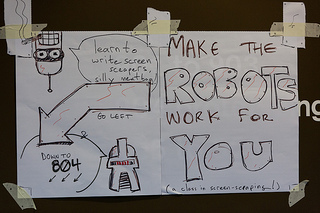 learn to
write screen
scrapers,
silly meatbag!
GO LEFT
DOWN TO
804
MAKE THE
ROBOTS
WORK FOR
YOU
(a class in screen-scraping!)